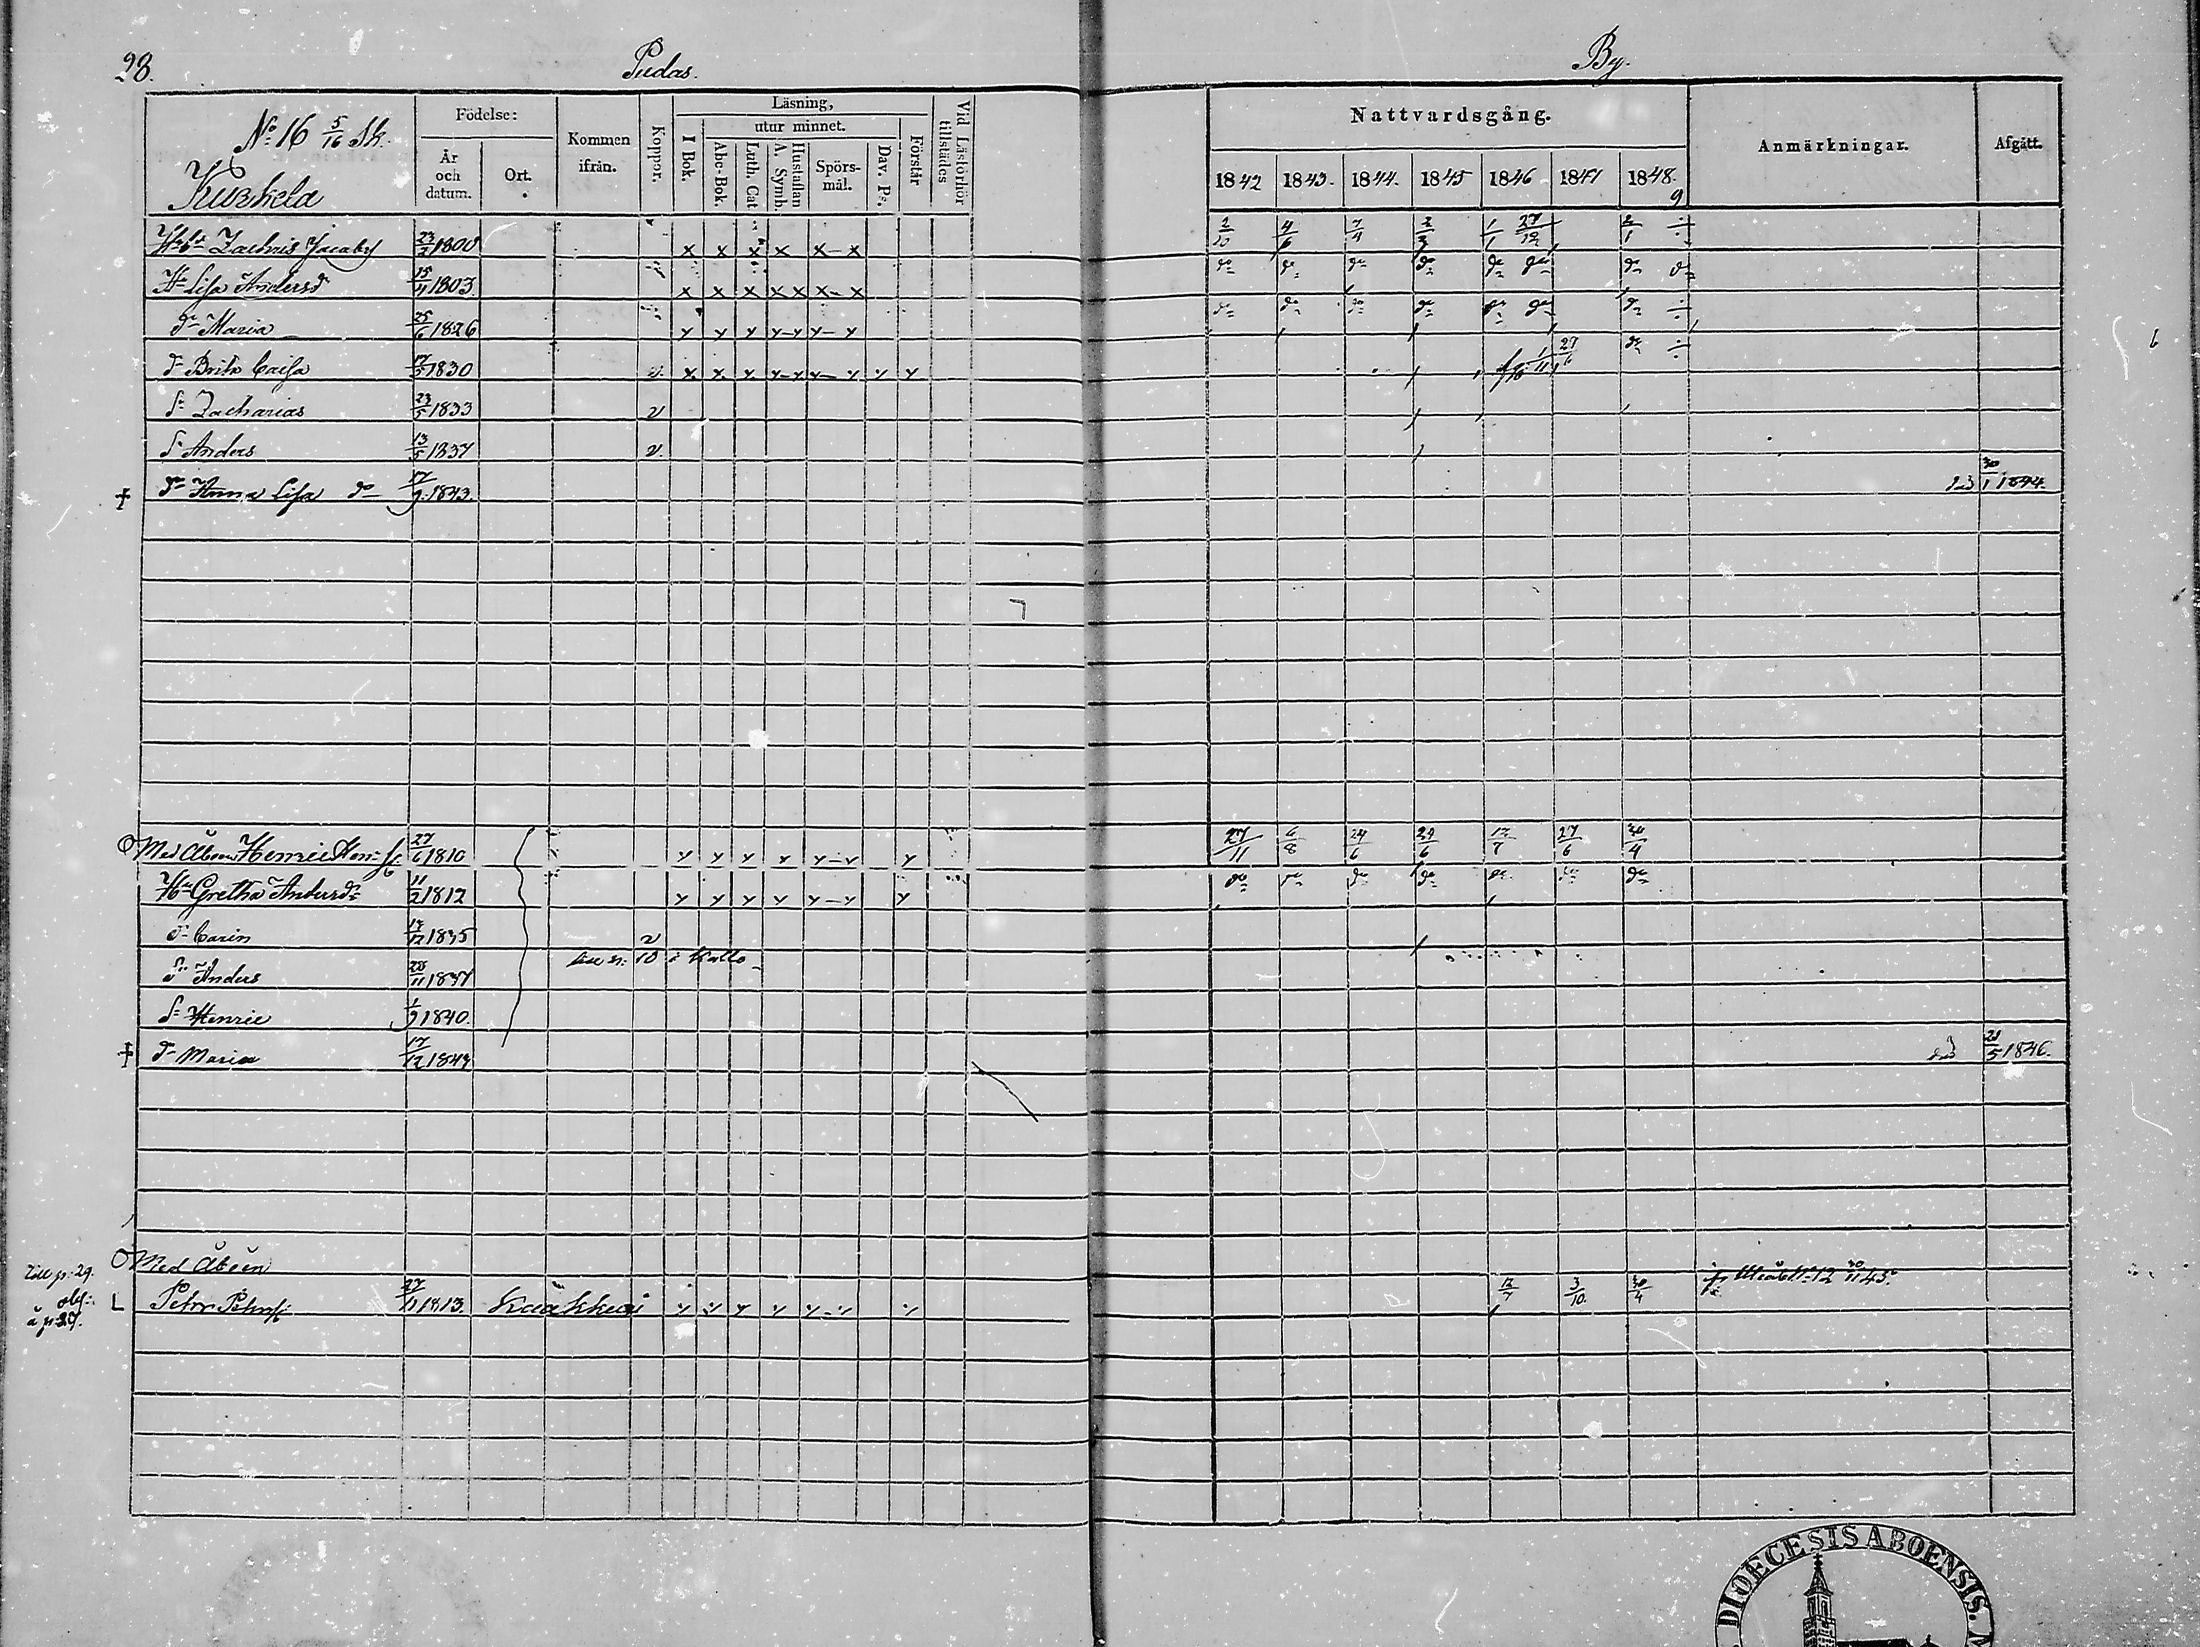 28. Pudas. By.
Nº 16 5/16 Sk.
Kurkela
Födelse: År och datum. Ort. Kommen ifrån. Koppor. Läsning, I Bok. utur minnet. Abc-Bok. Luth. Cat. A. Symb. Hustaflan Spörsmål. Dav. Ps. Förstår Vid Läsförhör tillstädes
Nattvardsgång. 1842 1843. 1844. 1845 1846 1847 1848. 9 Anmärkningar. Afgått.
Zachris Jacobs 23/2 1800 x x x x x-x 4/6 1/1 27/12 2/1 ÷
Hu Lisa Andersd 15/11 1803. x x x x x x-x do do do do do do do do
dr Maria 25/6 1826 y y y y-y y-y do do do do do do do ÷
dr Brita Caisa 1830 v. y. y. y. y-y y-y y y 1/11 27/6 do ÷
Sn Zacharias 23/5 1833 v
Sn Anders 13/5 1837 v.
† dr Anna Lisa do 17/9. 1843. 30/1 1844.
Med Åboen Henric Hen: 27/6 1810 y y y y y-y y 27/11 6/8 24/6 24/6 12/7 27/6 30/4
Hu Gretha Andersdr 11/2 1812 y y y y y-y y do do do do do do do
dr Carin 1835 v
Sn Anders 1837 10 i Kallo
Sn Henric 1/9 1840.
† dr Maria 17/12 1843 21/5 1846.
Med Åboen
Till p: 29.
å p: 27.
L Petter Petersn: 27/11 1813. Kaakkuri y y y y y-y y 12/7 3/10. 30/4 Nº 12 30/11 45.
DIOECESIS ABOENSIS.